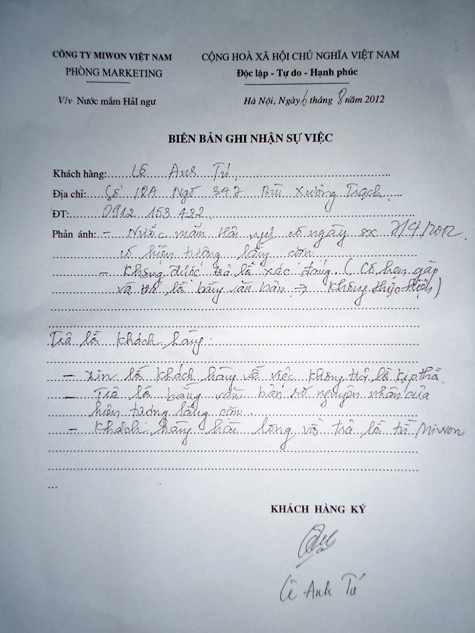 CÔNG TY MIWON VIỆT NAM
PHÒNG MARKETING
CỘNG HOÀ XÃ HỘI CHỦ NGHĨA VIỆT NAM
Độc lập - Tự do - Hạnh phúc
V/v Nước mắm HảI ngư
Hà Nội, Ngày 6 tháng 8 năm 2012
BIÊN BẢN GHI NHẬN SỰ VIỆC
Khách hàng: Lê Anh Tú
Địa chỉ: Số 12A Ngõ 342 Bùi Xương Trạch
ĐT: 0912 153 422
Phản ánh: - Nước mắm Hải ngư có ngày sx 7/4/2012
có hiện tượng lắng cặn
- Không được trả lời xác đáng (Có hẹn gặp
và trả lời bằng văn bản → không thực hiện)
Trả lời khách hàng:
- Xin lỗi khách hàng về việc không trả lời kịp thời
- Trả lời bằng văn bản về nguyên nhân của
hiện tượng lắng cặn
- Khách hàng hài lòng về trả lời từ Miwon
...
KHÁCH HÀNG KÝ
Lê Anh Tú